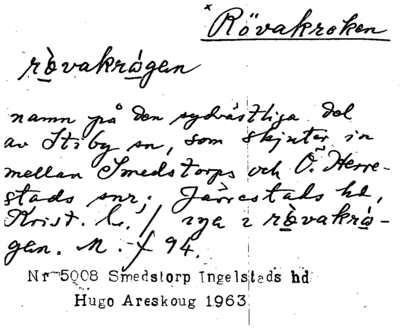 × Rövakroken
rå̀vakrågen
namn på den sydvästliga del
av Stiby sn, som skjuter in
mellan Smedstorps och Ö. Herre-
stads snr, Järrestads hd,
Krist. l. / i rå̀vakrå-
gen. M. f 94.
Nr 5008 Smedstorp Ingelstads hd
Hugo Areskoug 1963